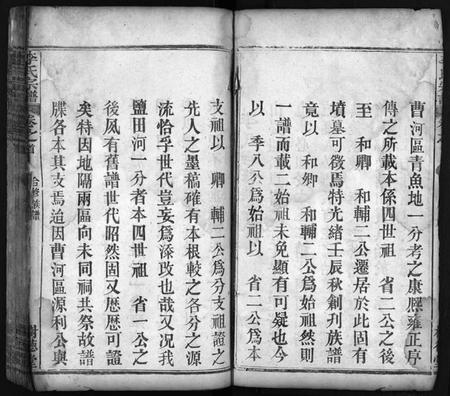 曹河區青魚地一分考之康熙雍正序
傳之所載本係四世祖 省二公之後
至 和卿 和輔二公遷居於此固有
墳墓可徵焉特光緒壬辰秋創刋族譜
竟以 和卿 和輔二公爲始祖然則
一譜而載二始祖未免顯有可疑也今
以 季八公爲始祖以 省二公爲本
支祖以 卿 輔二公爲分支祖證之
先人之墨稿確有本根較之各分之源
流恰乎世代豈妄爲添攷也哉又况我
鹽田河一分者本四世祖 省一公之
後夙有舊譜世代昭然固又歷歷可證
矣特因地隔兩區向未同祠共祭故譜
牒各本其支焉迨因曹河區源利公與
李氏宗譜
卷之首
合修族譜